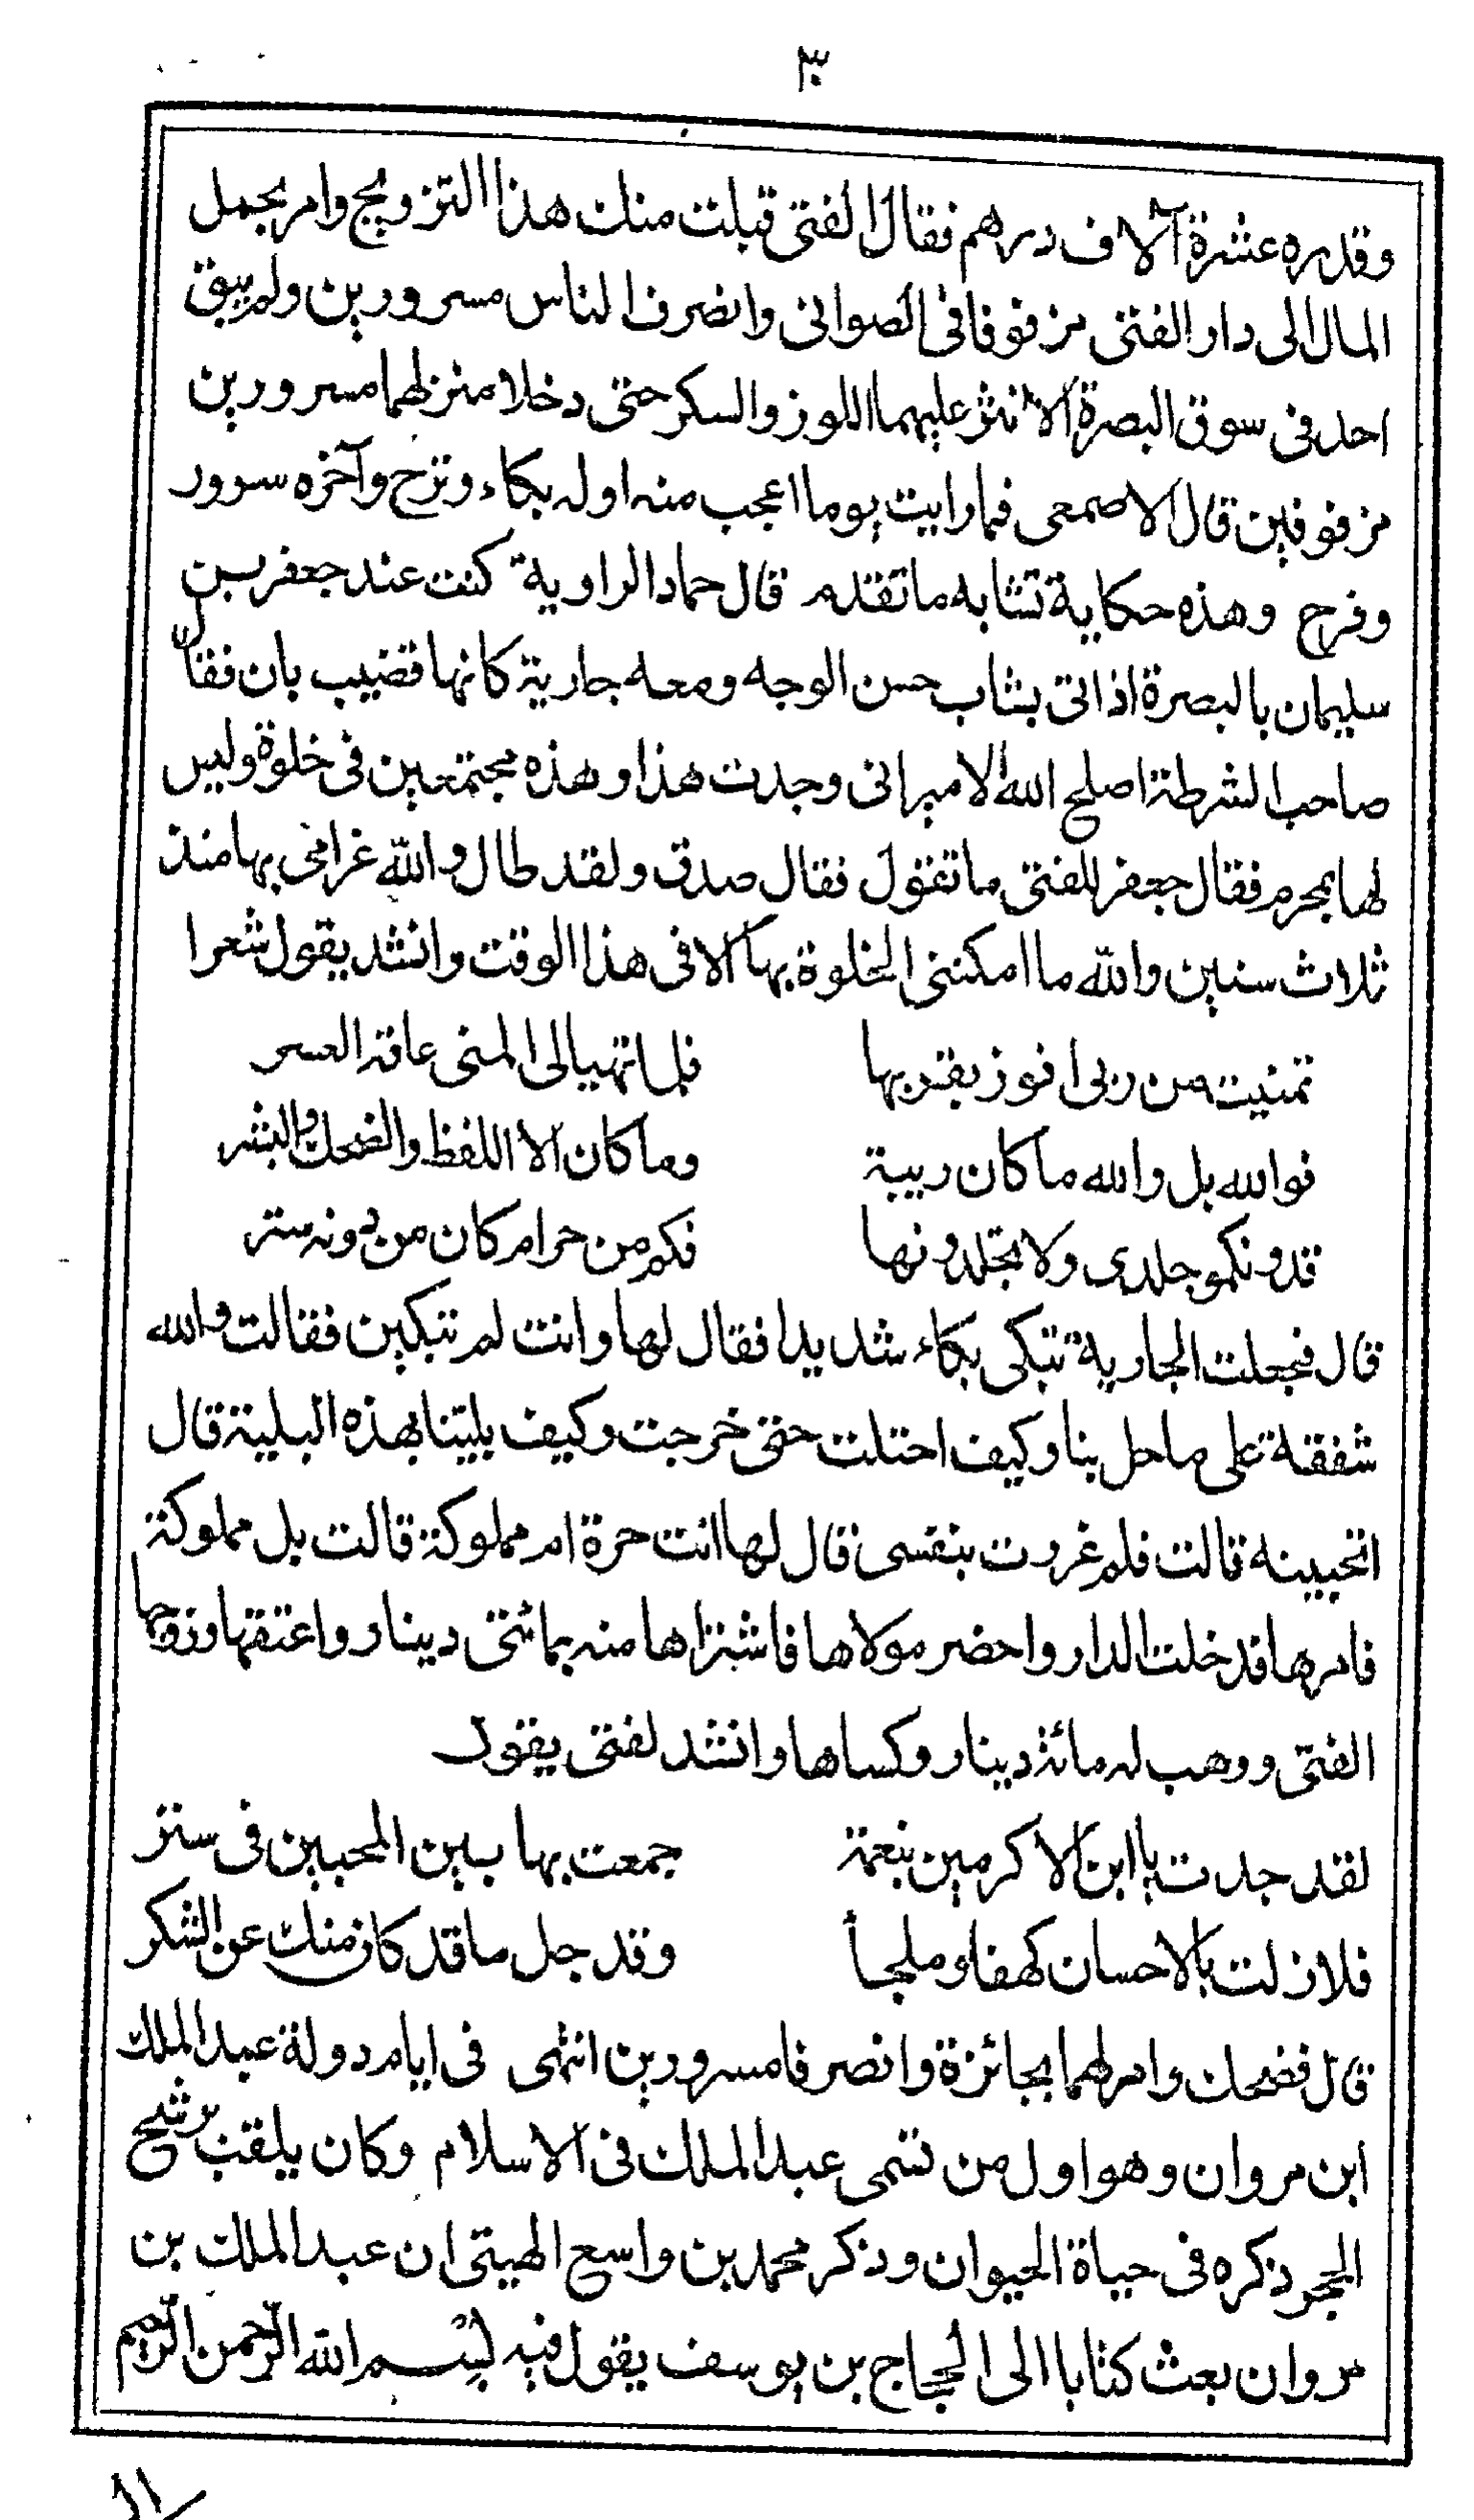 ٣٠
وقدره عشرة آلاف درهم فقال الفتى قبلت منك هذا التزويج وامر بحمل
المال الى دار الفتى مزفوفا فى الصوانى وانصرف الناس مسرورين ولم يبق
احد فى سوق البصرة الا نثر عليهما اللوز والسكر حتى دخلا منزلهما مسرورين
مزفوفين قال الاصمعى فما رايت يوما اعجب منه اوله بكاء وترح وآخره سرور
وفرح وهذه حكاية تشابه ما تقدم قال حماد الراوية كنت عند جعفر بن
سليمان بالبصرة اذ اتى بشاب حسن الوجه ومعه جارية كانها قضيب بان فقال
صاحب الشرطة اصلح الله الامير انى وجدت هذا وهذه مجتمعين فى خلوة وليس
لها بمحرم فقال جعفر للفتى ما تقول فقال صدق ولقد طال والله غرامى بها منذ
ثلاث سنين والله ما امكننى الخلوة بها الا فى هذا الوقت وانشد يقول شعرا
تمنيت من ربى افوز بقربها فلما تهيا لى المنى عاقه العسر
فوالله بل والله ما كان ريبة وما كان الا اللفظ والضحك والبشر
فدونكمو جلدى ولا تجلدونها فكم من حرام كان من دونه ستر
قال فجعلت الجارية تبكى بكاء شديدا فقال لها وانت لم تبكين فقالت والله
شفقة على ما حل بنا وكيف احتلت حتى خرجت وكيف بلينا بهذه البلية قال
اتحبينه قالت فلم غررت بنفسى قال لها انت حرة ام مملوكة قالت بل مملوكة
فامرها فدخلت الدار واحضر مولاها فاشتراها منه بمائتى دينار واعتقها وزوجها
الفتى ووهب له مائة دينار وكساها وانشد لفتى يقول
لقد جدت يا ابن الاكرمين بنعمة جمعت بها بين المحبين فى ستر
فلازلت بالاحسان كهفا وملجأ وقد جل ما قد كان منك عن الشكر
قال فضحك وامر لهما بجائزة وانصرفا مسرورين انتهى فى ايام دولة عبد الملك
ابن مروان وهو اول من تسمى عبد الملك فى الاسلام وكان يلقب برشح
الحجر ذكره فى حياة الحيوان وذكر محمد بن واسع الهيتى ان عبد الملك بن
مروان بعث كتابا الى الحجاج بن يوسف يقول فيه بسم الله الرحمن الرحيم